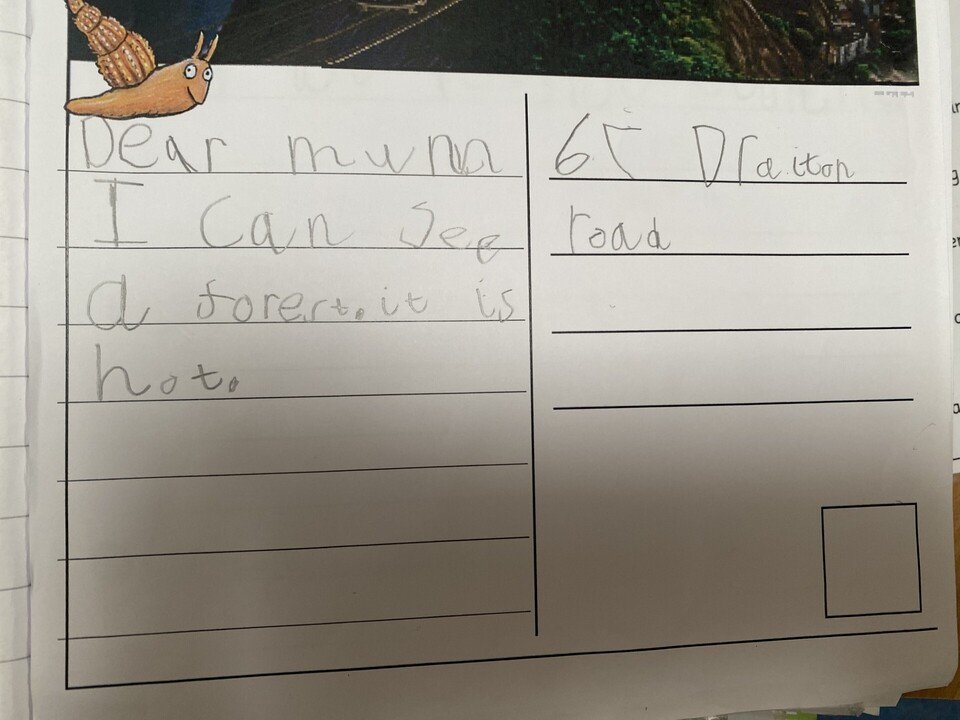 Dear
I can see
a forest. it is
hot.
65 Draiton
road